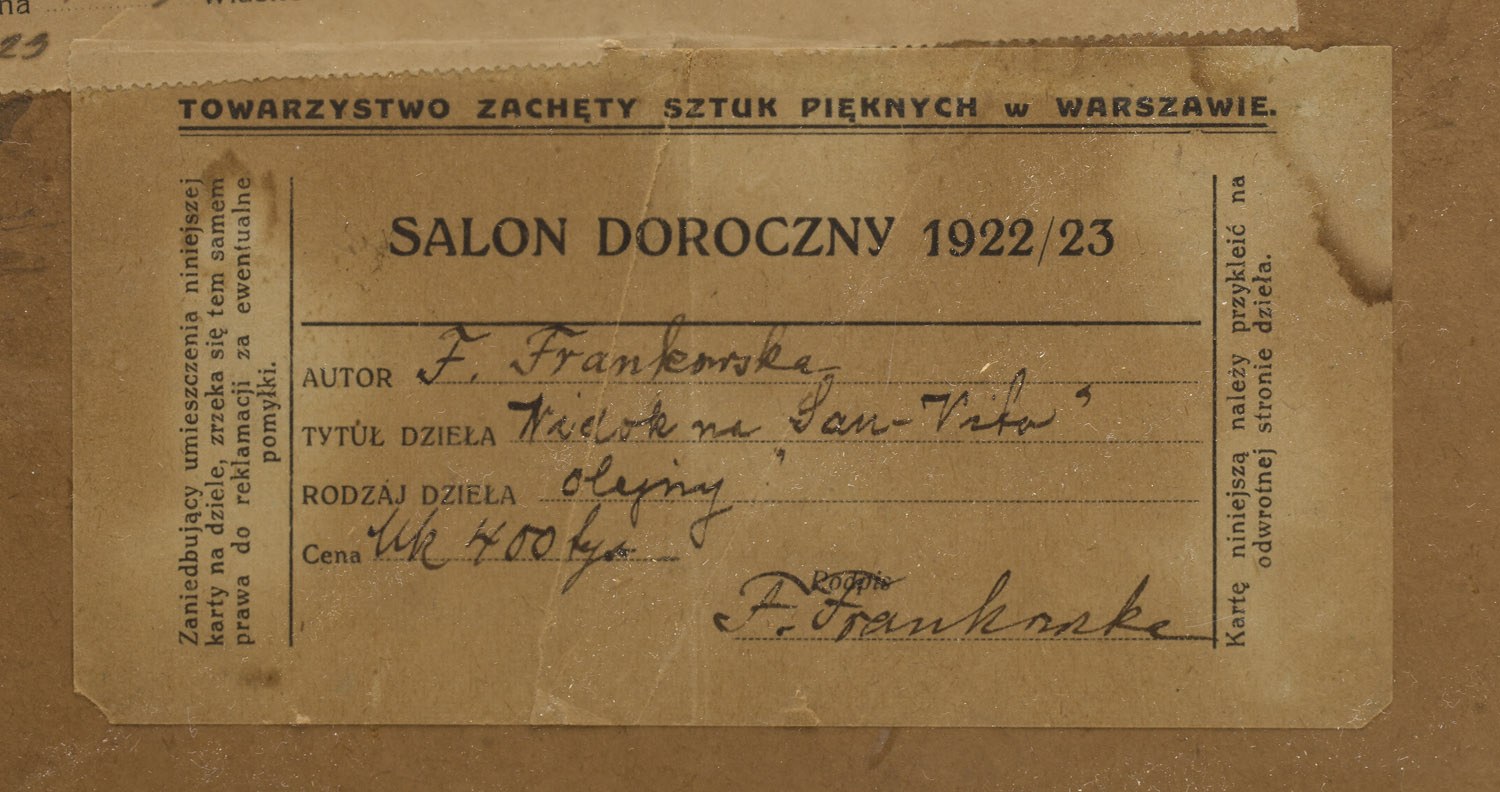 na
23
TOWARZYSTWO ZACHĘTY SZTUK PIĘKNYCH w WARSZAWIE.
Zaniedbujący umieszczenia niniejszej
karty na dziele, zrzeka się tem samem
prawa do reklamacji za ewentualne
pomyłki.
SALON DOROCZNY 1922/23
AUTOR F. Frankowska
TYTÚŁ DZIEŁA Widok na "San-Vito"
RODZAJ DZIEŁA olejny
Cena Mk 400 tys
Podpis
F. Frankowska
Kartę niniejszą należy przykleić na
odwrotnej stronie dzieła.